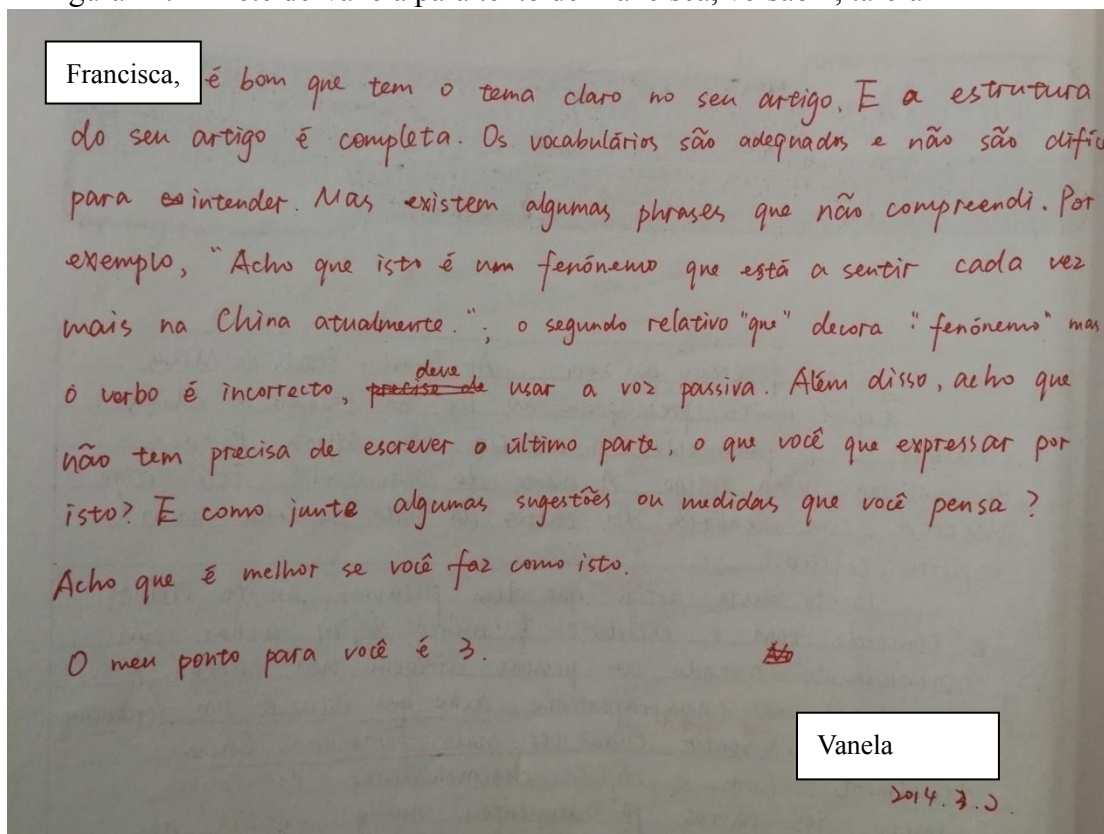 Francisca, é bom que tem o tema claro no seu artigo. E a estrutura
do seu artigo é completa. Os vocabulários são adequados e não são difíc
para intender. Mas existem algumas phrases que não compreendi. Por
exemplo, "Acho que isto é um fenónemo que está a sentir cada vez
mais na China atualmente."; o segundo relativo "que" decora "fenónemo" mas
o verbo é incorrecto, preciso de deve usar a voz passiva. Além disso, acho que
não tem precisa de escrever o último parte, o que você que expressar por
isto? E como junte algumas sugestões ou medidas que você pensa?
Acho que é melhor se você faz como isto.
O meu ponto para você é 3.
Vanela
2014.3.2.